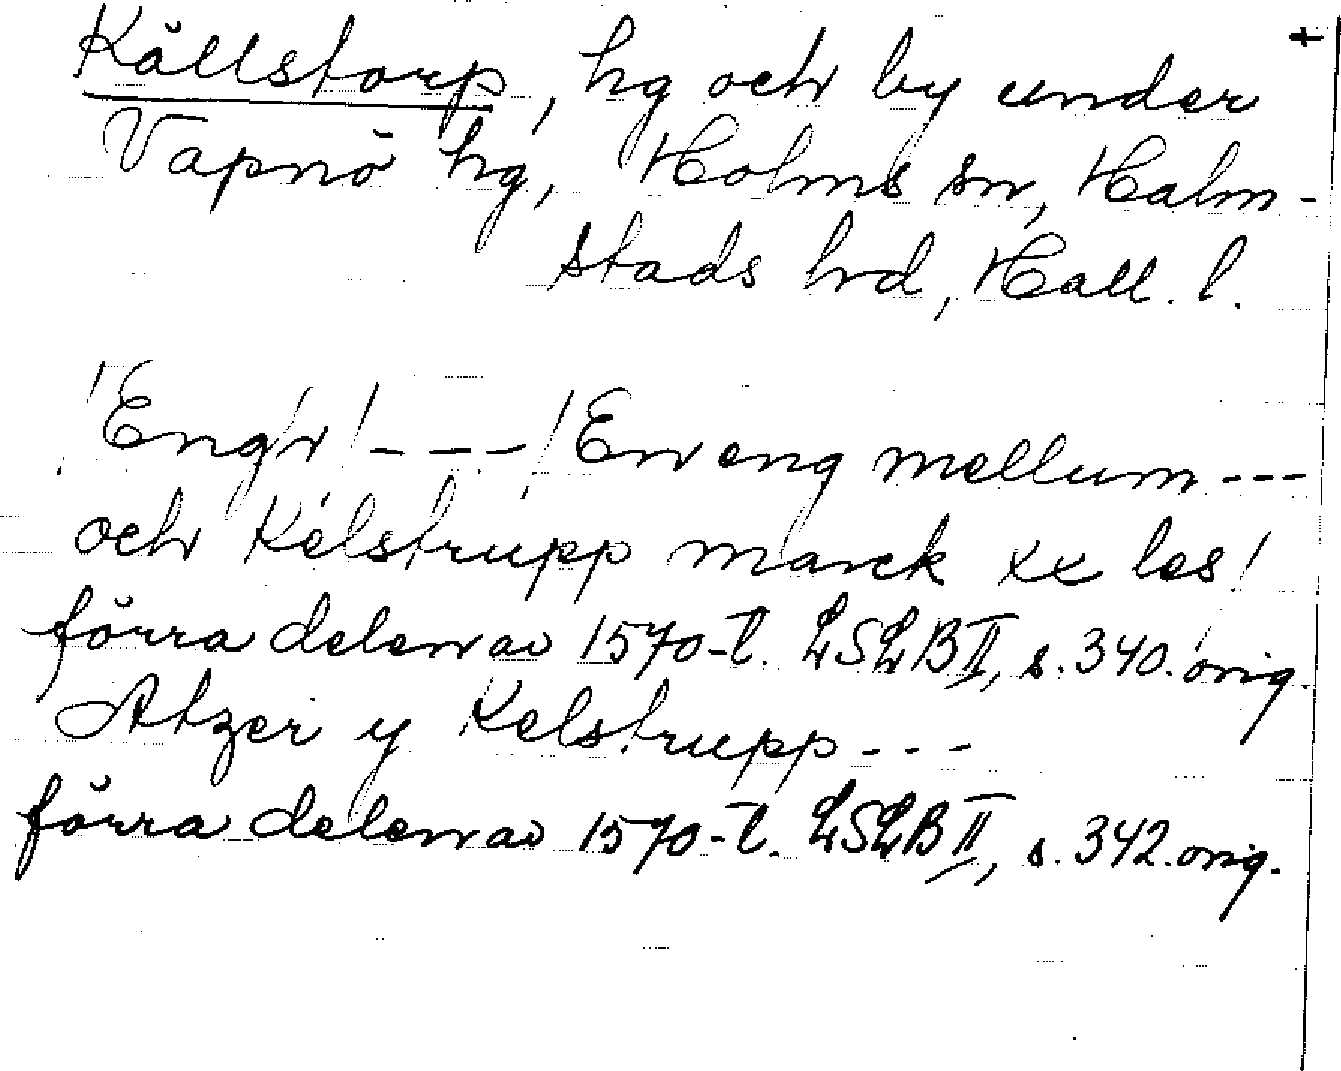 +
Källstorp, hg och by under
Vapnö hg, Holms sn, Halm-
stads hd, Hall. l.
/Eng/r/ --- / En eng mellum ---
och Kelstrupp marck xx les/
förra delen av 1570-t. LSLB II, s. 340. orig.
Atzer y Kelstrupp ---
förra delen av 1570-t. LSLB II, s. 342. orig.